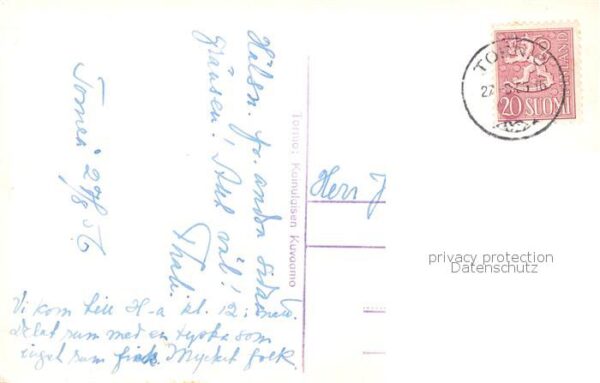 Torneå 27/8 56
Hälsn. fr. andra sidan
gränsen! Allt väl!
Vi kom till H-a kl. 12:
Delat rum med en tyska som
inget rum fick. Mycket folk.
Tornio: Koinulaisen Kuvaamo
Herr J
TORNIO
20 SUOMI
FINLAND
privacy protection
Datenschutz